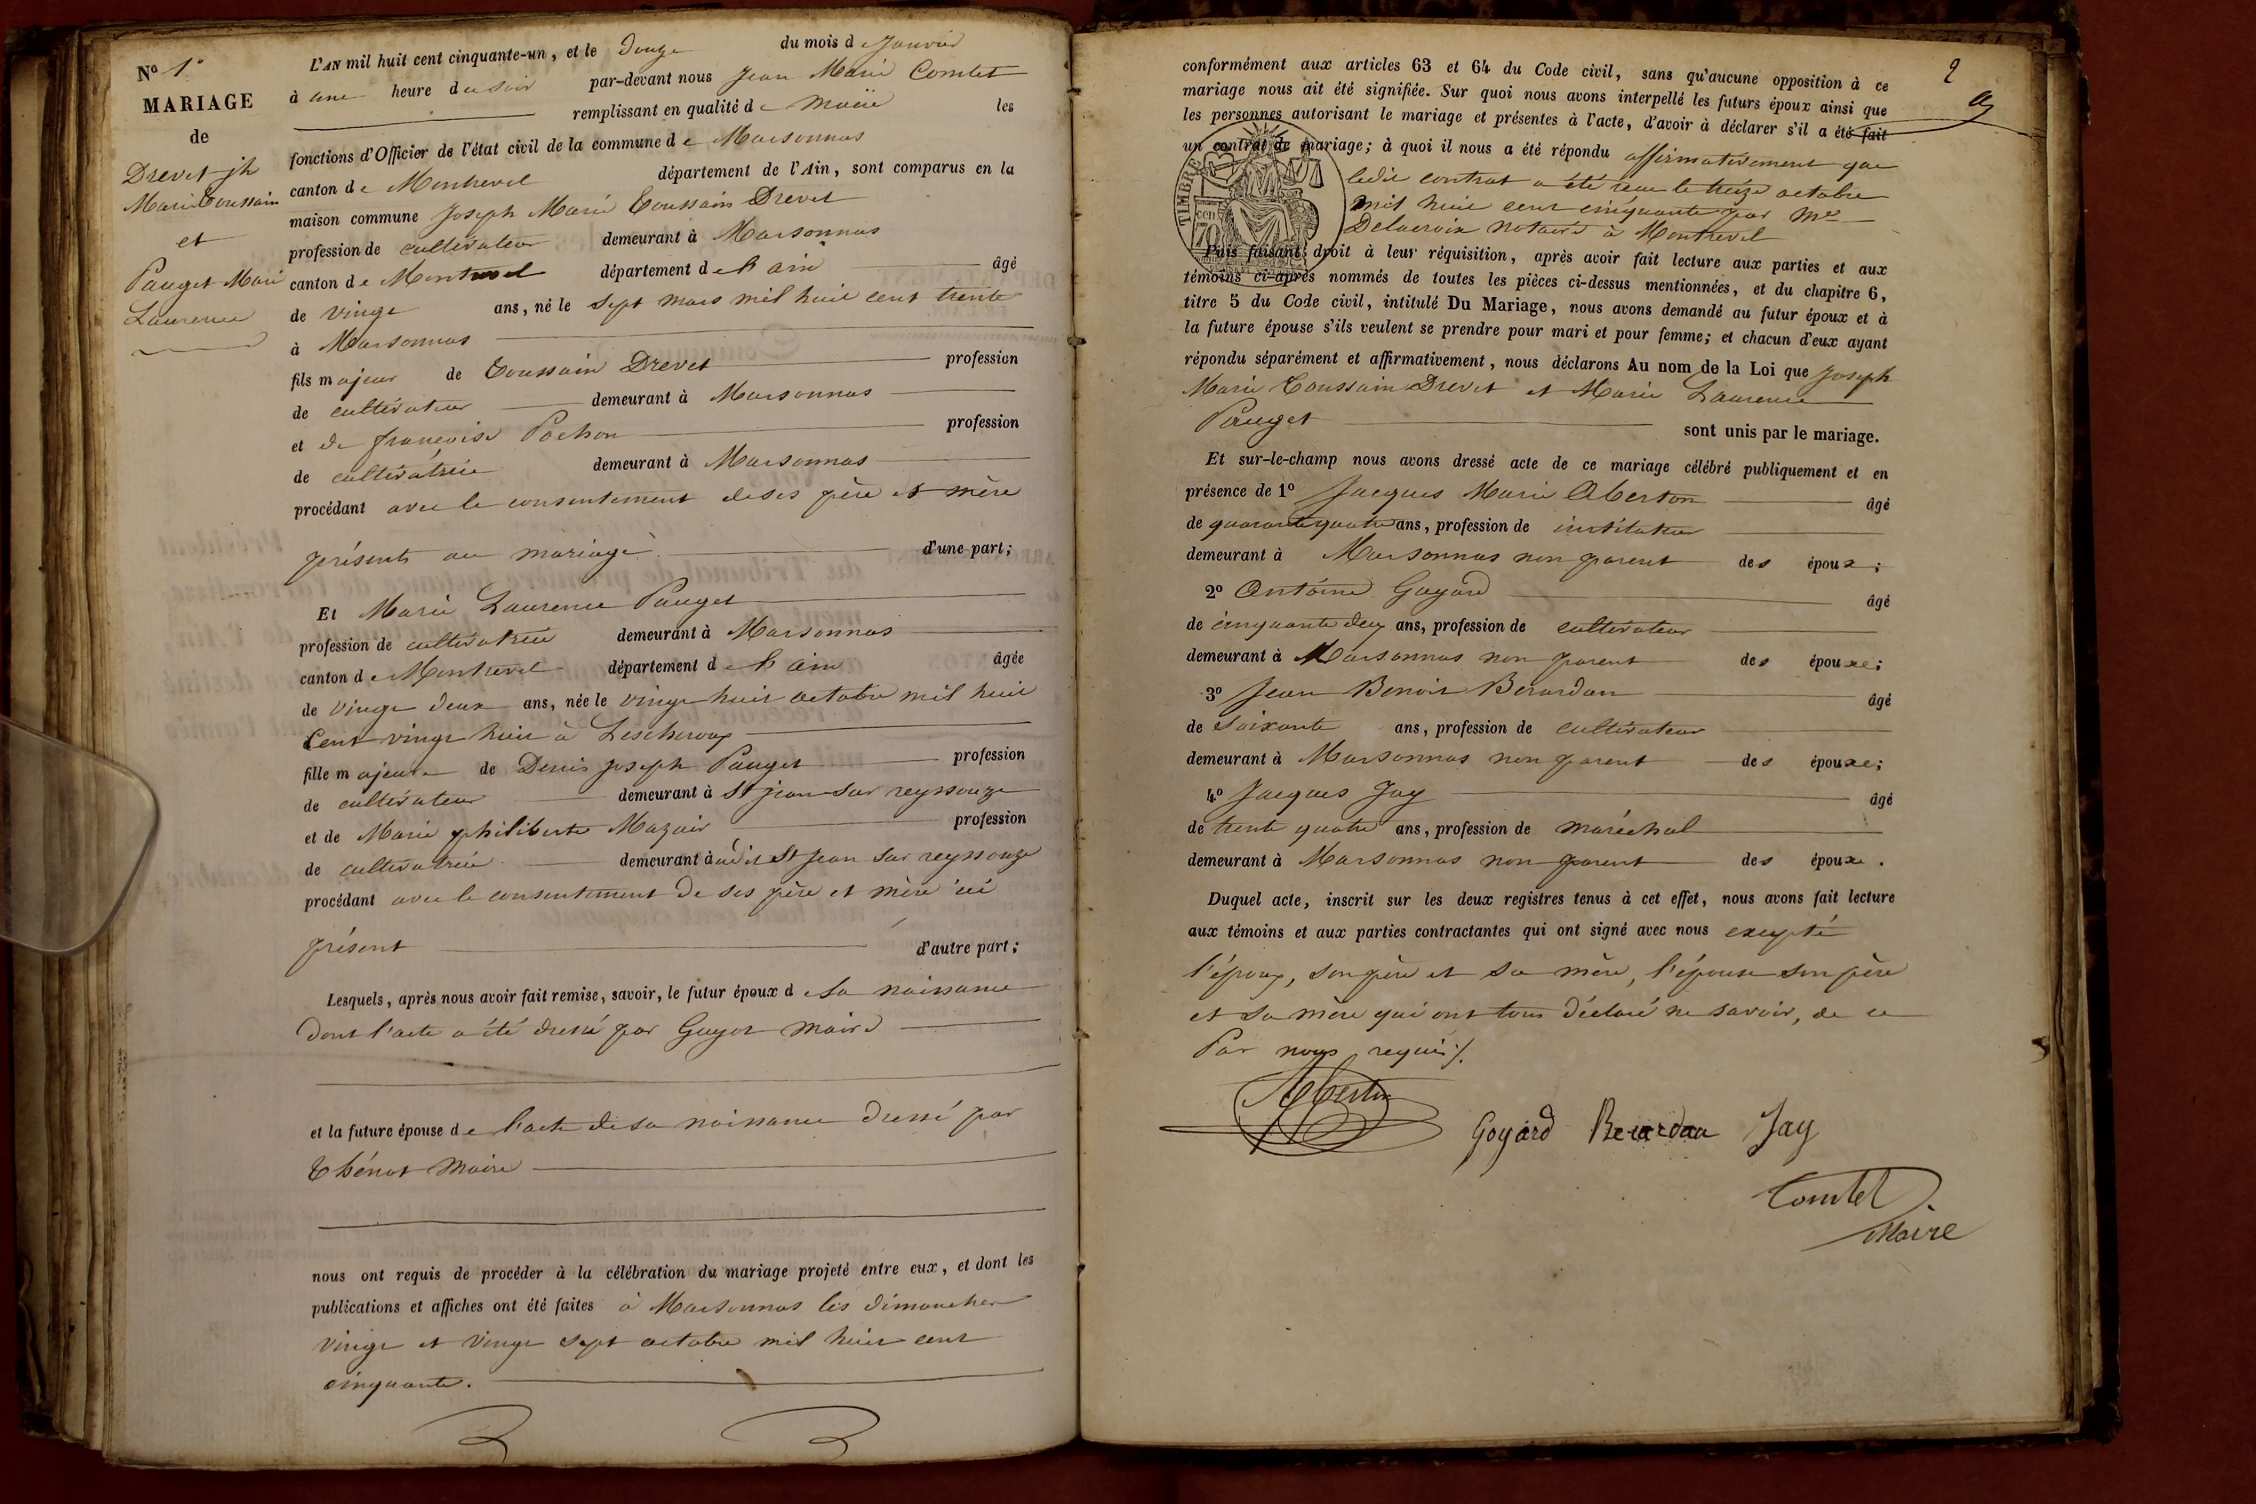 N° 1er
MARIAGE
de
Drevet jh
Marie Toussain
et
Pauget Marie
Laurence
L'AN mil huit cent cinquante-un, et le Douze du mois de Janvier
à une heure du soir par-devant nous Jean Marie Comtet
remplissant en qualité de Maire les
fonctions d'Officier de l'état civil de la commune de Marsonnas
canton de Montrevel département de l'Ain, sont comparus en la
maison commune Joseph Marie Toussain Drevet
profession de cultivateur demeurant à Marsonnas
canton de Montrevel département de l'ain âgé
de vingt ans, né le sept mars mil huit cent trente
à Marsonnas
fils majeur de Toussain Drevet profession
de cultivateur demeurant à Marsonnas
et de françoise Pochon profession
de cultivatrice demeurant à Marsonnas
procédant avec le consentement de ses père et mère
présents au mariage d'une part;
Et Marie Laurence Pauget
profession de cultivatrice demeurant à Marsonnas
canton de Montrevel département de l'ain âgée
de vingt deux ans, née le vingt huit octobre mil huit
cent vingt huit à Lescheroux
fille majeure de Denis Joseph Pauget profession
de cultivateur demeurant à St jean sur reyssouze
et de Marie philiberte Mazuir profession
de cultivatrice demeurant à udit St Jean sur reyssouze
procédant avec le consentement de ses père et mère ici
présent d'autre part;
Lesquels, après nous avoir fait remise, savoir, le futur époux de sa naissance
dont l'acte a été dressé par Guyot maire
et la future épouse de l'acte de sa naissance dressé par
Thénot Maire
nous ont requis de procéder à la célébration du mariage projeté entre eux, et dont les
publications et affiches ont été faites à Marsonnas les dimanches
vingt et vingt sept octobre mil huit cent
cinquante.
2
conformément aux articles 63 et 64 du Code civil, sans qu'aucune opposition à ce
mariage nous ait été signifiée. Sur quoi nous avons interpellé les futurs époux ainsi que
les personnes autorisant le mariage et présentes à l'acte, d'avoir à déclarer s'il a été fait
un contrat de mariage; à quoi il nous a été répondu affirmativement que
ledit contrat a été reçu le treize octobre
mil huit cent cinquante par Me
Delacroix notaire à Montrevel
TIMBRE
cen
70
Puis faisant droit à leur réquisition, après avoir fait lecture aux parties et aux
témoins ci-après nommés de toutes les pièces ci-dessus mentionnées, et du chapitre 6,
titre 5 du Code civil, intitulé Du Mariage, nous avons demandé au futur époux et à
la future épouse s'ils veulent se prendre pour mari et pour femme; et chacun d'eux ayant
répondu séparément et affirmativement, nous déclarons Au nom de la Loi que Joseph
Marie Toussain Drevet et Marie Laurence
Pauget sont unis par le mariage.
Et sur-le-champ nous avons dressé acte de ce mariage célébré publiquement et en
présence de 1° Jacques Marie Oberton âgé
de quarante quatre ans, profession de instituteur
demeurant à Marsonnas non parent des époux;
2° Antoine Goyard âgé
de cinquante deux ans, profession de cultivateur
demeurant à Marsonnas non parent des époux;
3° Jean Benoit Berardan âgé
de soixante ans, profession de cultivateur
demeurant à Marsonnas non parent des époux;
4° Jacques Jay âgé
de trente quatre ans, profession de maréchal
demeurant à Marsonnas non parent des époux.
Duquel acte, inscrit sur les deux registres tenus à cet effet, nous avons fait lecture
aux témoins et aux parties contractantes qui ont signé avec nous excepté
l'époux, son père et sa mère, l'épouse son père
et sa mère qui ont tous déclaré ne savoir, de ce
Par nous requis./.
Goyard Berardan Jay
Comtet
Maire